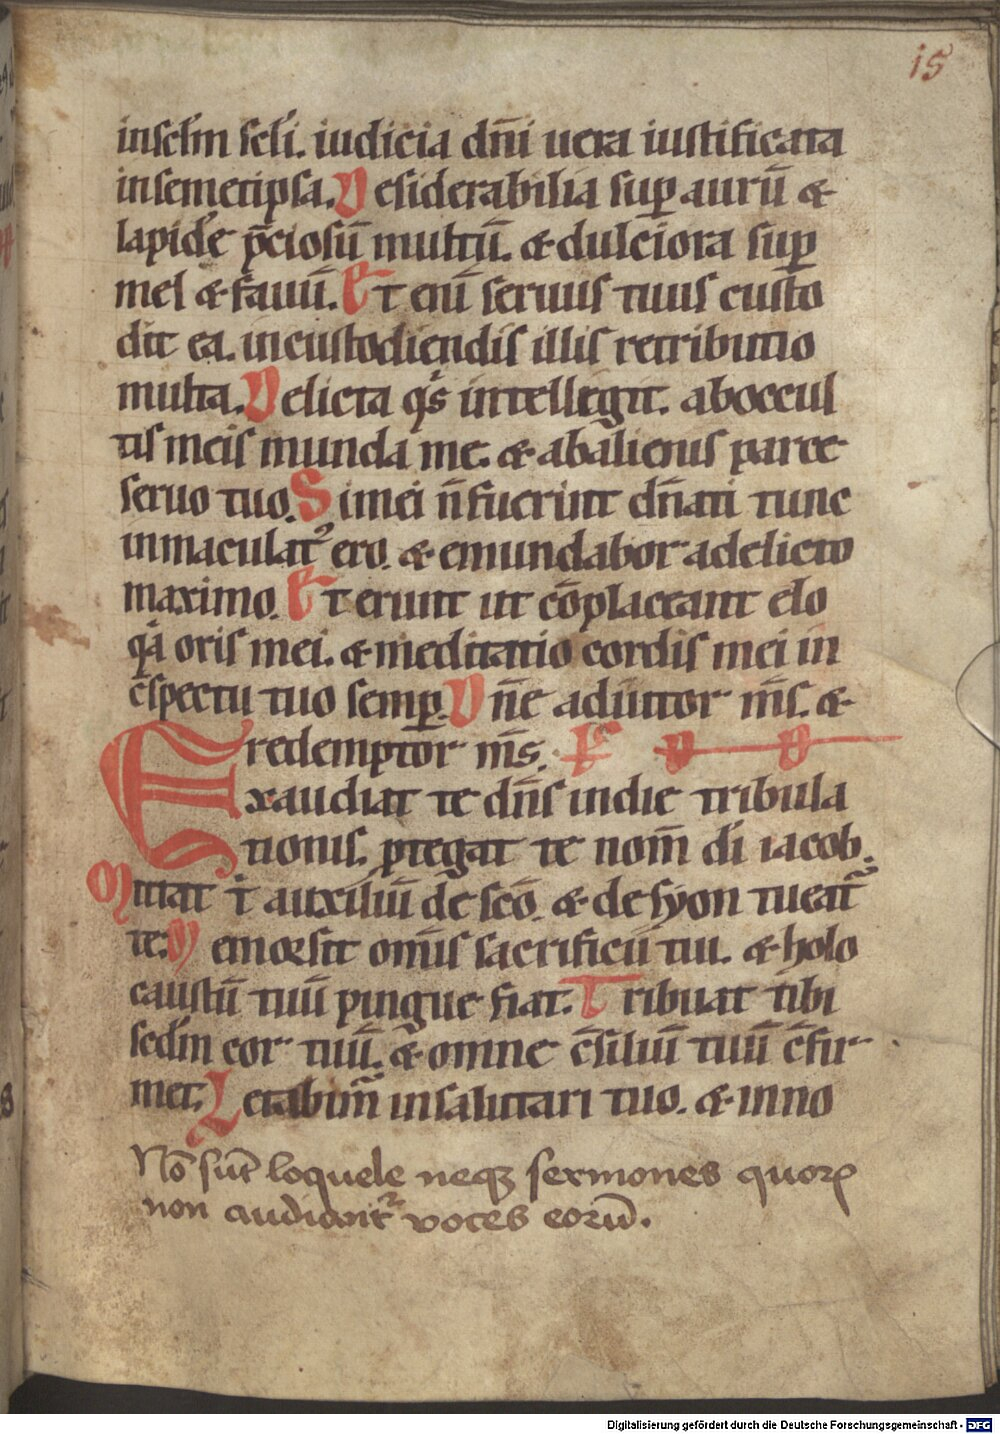 15
insclm scli. iudicia dn̄i uera iustificata
insemetipsa. Desiderabilia sup aurū &
lapidē p̄ciosū multū. & dulciora sup
mel & fauū. Et enī seruus tuus custo
dit ea. incustodiendis illis retributio
multa. Delicta qⁱs intellegit. aboccul
tis meis munda me. & abalienis parce
seruo tuo. Si mei n̄ fuerint dn̄ati tunc
inmaculatꝰ ero. & emundabor adelicto
maximo. Et erunt ut cōplaceant elo
qͣ oris mei. & meditatio cordis mei in
c̄spectu tuo semp. Dn̄e adiutor m̄s. &
redemptor m̄s. Ps
Exaudiat te dn̄s indie tribula
tionis. ptegat te nom̄ dī iacob.
Mittat t̄ auxiliū de scō. & de syon tueatᷣ
te. Memor sit om̄is sacrificii tui. & holo
caustū tuū pingue fiat. Tribuat tibi
secd̄m cor tuū. & omne c̄siliū tuū c̄fir
met. Letabimᷣ insalutari tuo. & inno
Nō sūt loquele neqꝫ sermones quorꝝ
non audiantᷣ voces eorū.
Digitalisierung gefördert durch die Deutsche Forschungsgemeinschaft - DFG